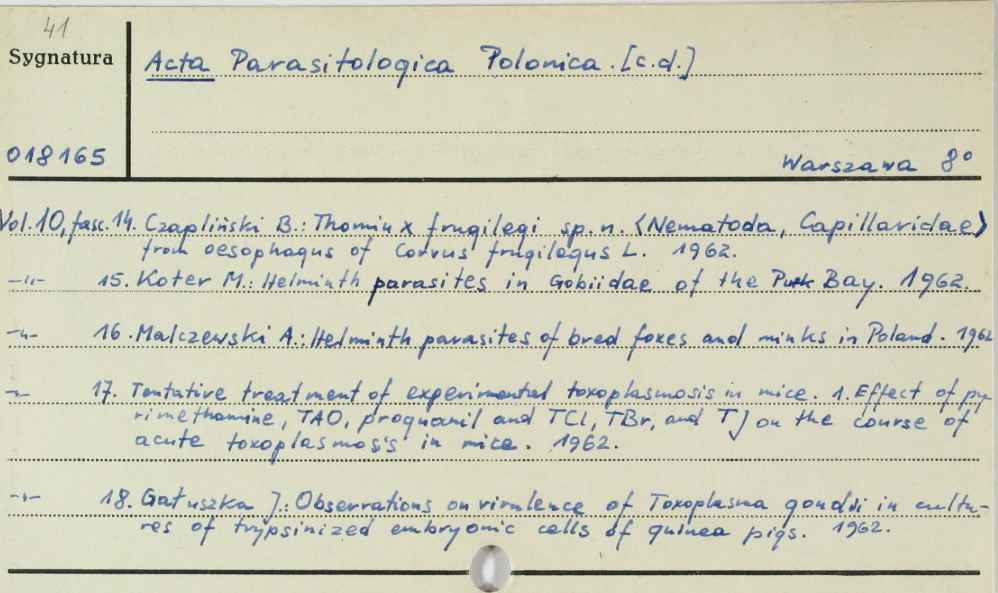 41
Sygnatura
Acta Parasitologica Polonica. [c.d.]
018165
Warszawa 8°
Vol. 10, fasc. 14. Czapliński B.: Thominx frugilegi sp. n. (Nematoda, Capillaridae)
from oesophagus of Corvus frugilegus L. 1962.
-"- 15. Koter M.: Helminth parasites in Gobiidae of the Puck Bay. 1962.
-"- 16. Malczewski A.: Helminth parasites of bred foxes and minks in Poland. 1962
-"- 17. Tentative treatment of experimental toxoplasmosis in mice. 1. Effect of py-
rimethamine, TAO, proguanil and TCl, TBr, and TJ on the course of
acute toxoplasmosis in mice. 1962.
-"- 18. Gatuszka J.: Observations on virulence of Toxoplasma gondii in cultu-
res of trypsinized embryonic cells of guinea pigs. 1962.